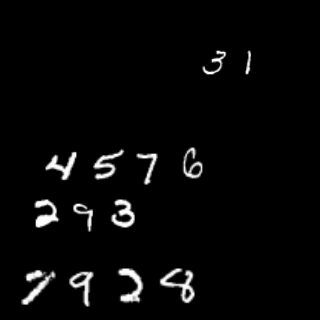 31
4576
293
7928